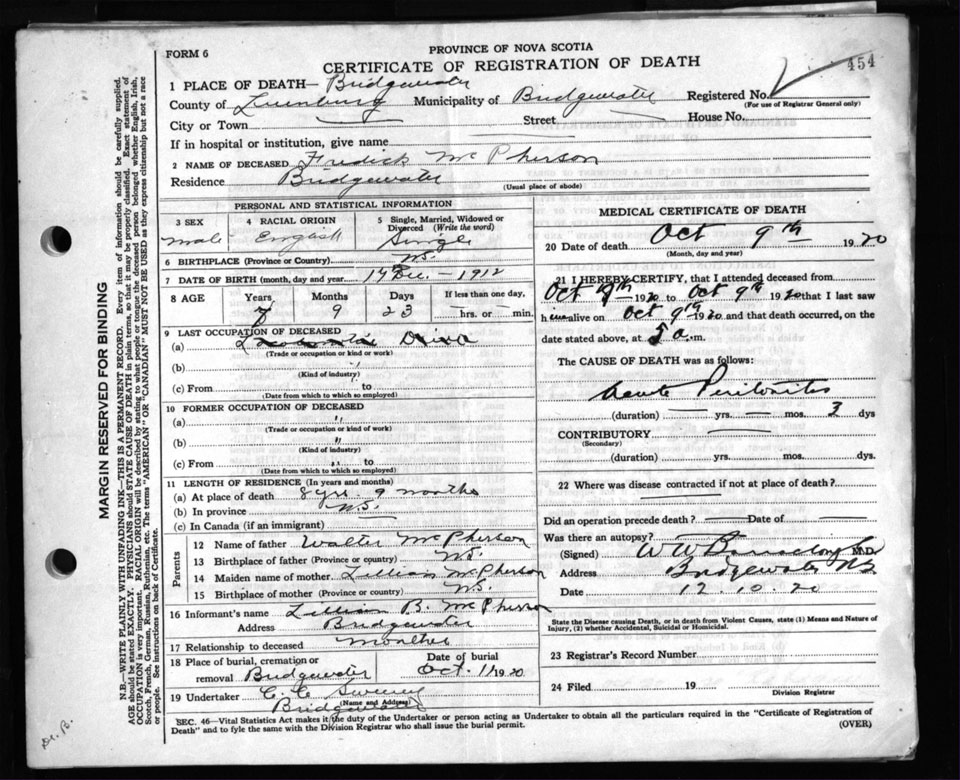 FORM 6
PROVINCE OF NOVA SCOTIA
CERTIFICATE OF REGISTRATION OF DEATH
454
1 PLACE OF DEATH— Bridgewater
Registered No.
(For use of Registrar General only)
County of Lunenburg Municipality of Bridgewater
City or Town Street House No.
If in hospital or institution, give name
2 NAME OF DECEASED Fredick McPherson
Residence Bridgewater
(Usual place of abode)
PERSONAL AND STATISTICAL INFORMATION
3 SEX 4 RACIAL ORIGIN 5 Single, Married, Widowed or Divorced (Write the word)
male English Single
6 BIRTHPLACE (Province or Country) N.S.
7 DATE OF BIRTH (month, day and year 14 Dec. — 1912
8 AGE Years Months Days If less than one day,
7 9 23 hrs. or min.
9 LAST OCCUPATION OF DECEASED
(a)
(Trade or occupation or kind or work)
(b) "
(Kind of industry)
(c) From to
(Date from which to which so employed)
10 FORMER OCCUPATION OF DECEASED
(a) "
(Trade or occupation or kind of work)
(b) "
(Kind of industry)
(c) From " to
(Date from which to which so employed)
11 LENGTH OF RESIDENCE (In years and months)
(a) At place of death 8 yrs. 9 months
(b) In province N.S.
(c) In Canada (if an immigrant)
Parents
12 Name of father Walter McPherson
13 Birthplace of father (Province or country) N.S.
14 Maiden name of mother Lillian McPherson
15 Birthplace of mother (Province or country) N.S.
16 Informant's name Lillian B. McPherson
Address Bridgewater
17 Relationship to deceased Moather
18 Place of burial, cremation or removal Bridgewater
Date of burial Oct. 11 1920
19 Undertaker C. C. Sweeny
(Name and Address)
Bridgewater
MEDICAL CERTIFICATE OF DEATH
20 Date of death Oct 9th 1920
(Month, day and year)
21 I HEREBY CERTIFY, that I attended deceased from
Oct 1920 to Oct 9th 1920 that I last saw
him alive on Oct 9th 1920 and that death occurred, on
date stated above, at 5 a. m.
The CAUSE OF DEATH was as follows:
Acute Peritonitis
(duration) — yrs. — mos. 3 dys
CONTRIBUTORY —
(Secondary)
(duration) yrs. mos. dys.
22 Where was disease contracted if not at place of death?
Did an operation precede death? — Date of —
Was there an autopsy? —
(Signed) W W M.D.
Address Bridgewater N.S.
Date 12.10.20
State the Disease causing Death, or in death from Violent Causes, state (1) Means and Nature of Injury, (2) whether Accidental, Suicidal or Homicidal.
23 Registrar's Record Number
24 Filed 19
Division Registrar
SEC. 46—Vital Statistics Act makes it the duty of the Undertaker or person acting as Undertaker to obtain all the particulars required in the "Certificate of Registration of
Death" and to fyle the same with the Division Registrar who shall issue the burial permit. (OVER)
MARGIN RESERVED FOR BINDING
N.B.—WRITE PLAINLY WITH UNFADING INK—THIS IS A PERMANENT RECORD. Every item of information should be carefully supplied.
AGE should be stated EXACTLY. PHYSICIANS should STATE CAUSE OF DEATH in plain terms, so that it may be properly classified. Exact statement of
OCCUPATION is very important. RACIAL ORIGIN will be described by stating to what people or tongue the deceased person belonged whether English, Irish,
Scotch, French, German, Russian, Ruthenian, etc. The terms "AMERICAN" OR "CANADIAN" MUST NOT BE USED as they express citizenship but not a race
or people. See instructions on back of Certificate.